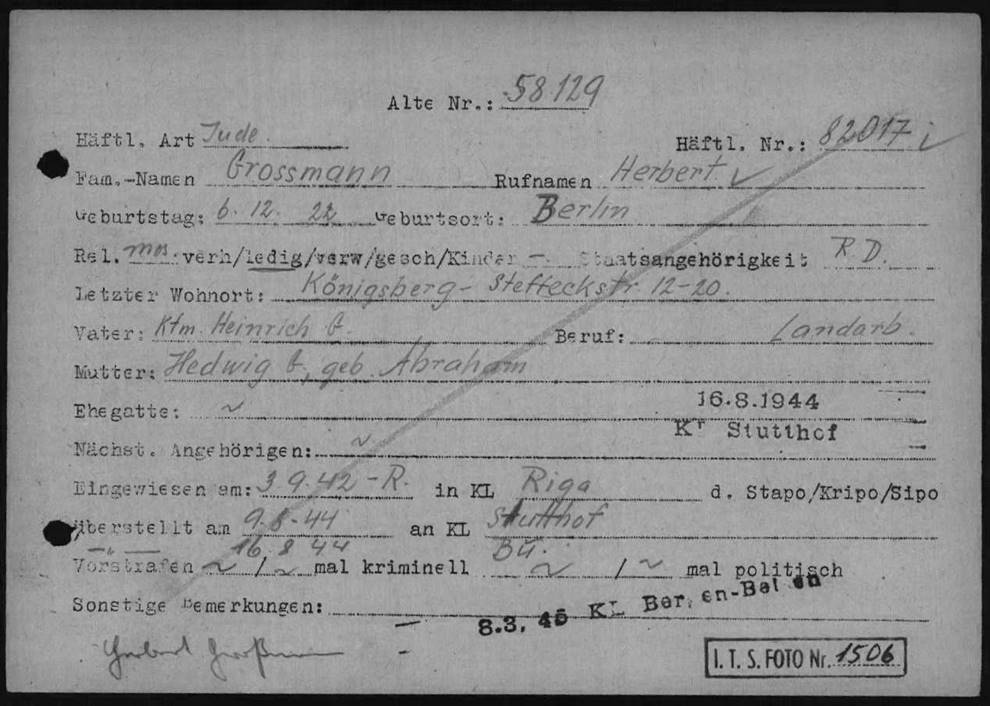 Alte Nr.: 58129
Häftl. Art Jude. Häftl. Nr.: 82017
Fam.-Namen Grossmann Rufnamen Herbert
Geburtstag: 6. 12. 22 Geburtsort: Berlin
Rel. mos. verh/ledig/verw/gesch/Kinder – Staatsangehörigkeit R.D.
Letzter Wohnort: Königsberg - Steffeckstr. 12-20.
Vater: Kfm. Heinrich G. Beruf: Landarb.
Mutter: Hedwig G, geb. Abraham
16.8.1944
Ehegatte: ~
Kr Stutthof
Nächst. Angehörigen: ~
Eingewiesen am: 3.9.42 -R. in KL Riga d. Stapo/Kripo/Sipo
überstellt am 9.8.44 an KL Stutthof
—"— 16.8.44 Bu.
Vorstrafen ~ / ~ mal kriminell ~ / ~ mal politisch
Sonstige Bemerkungen:
8.3.45 KL
Herbert Großmann
I.T.S. FOTO Nr. 1506